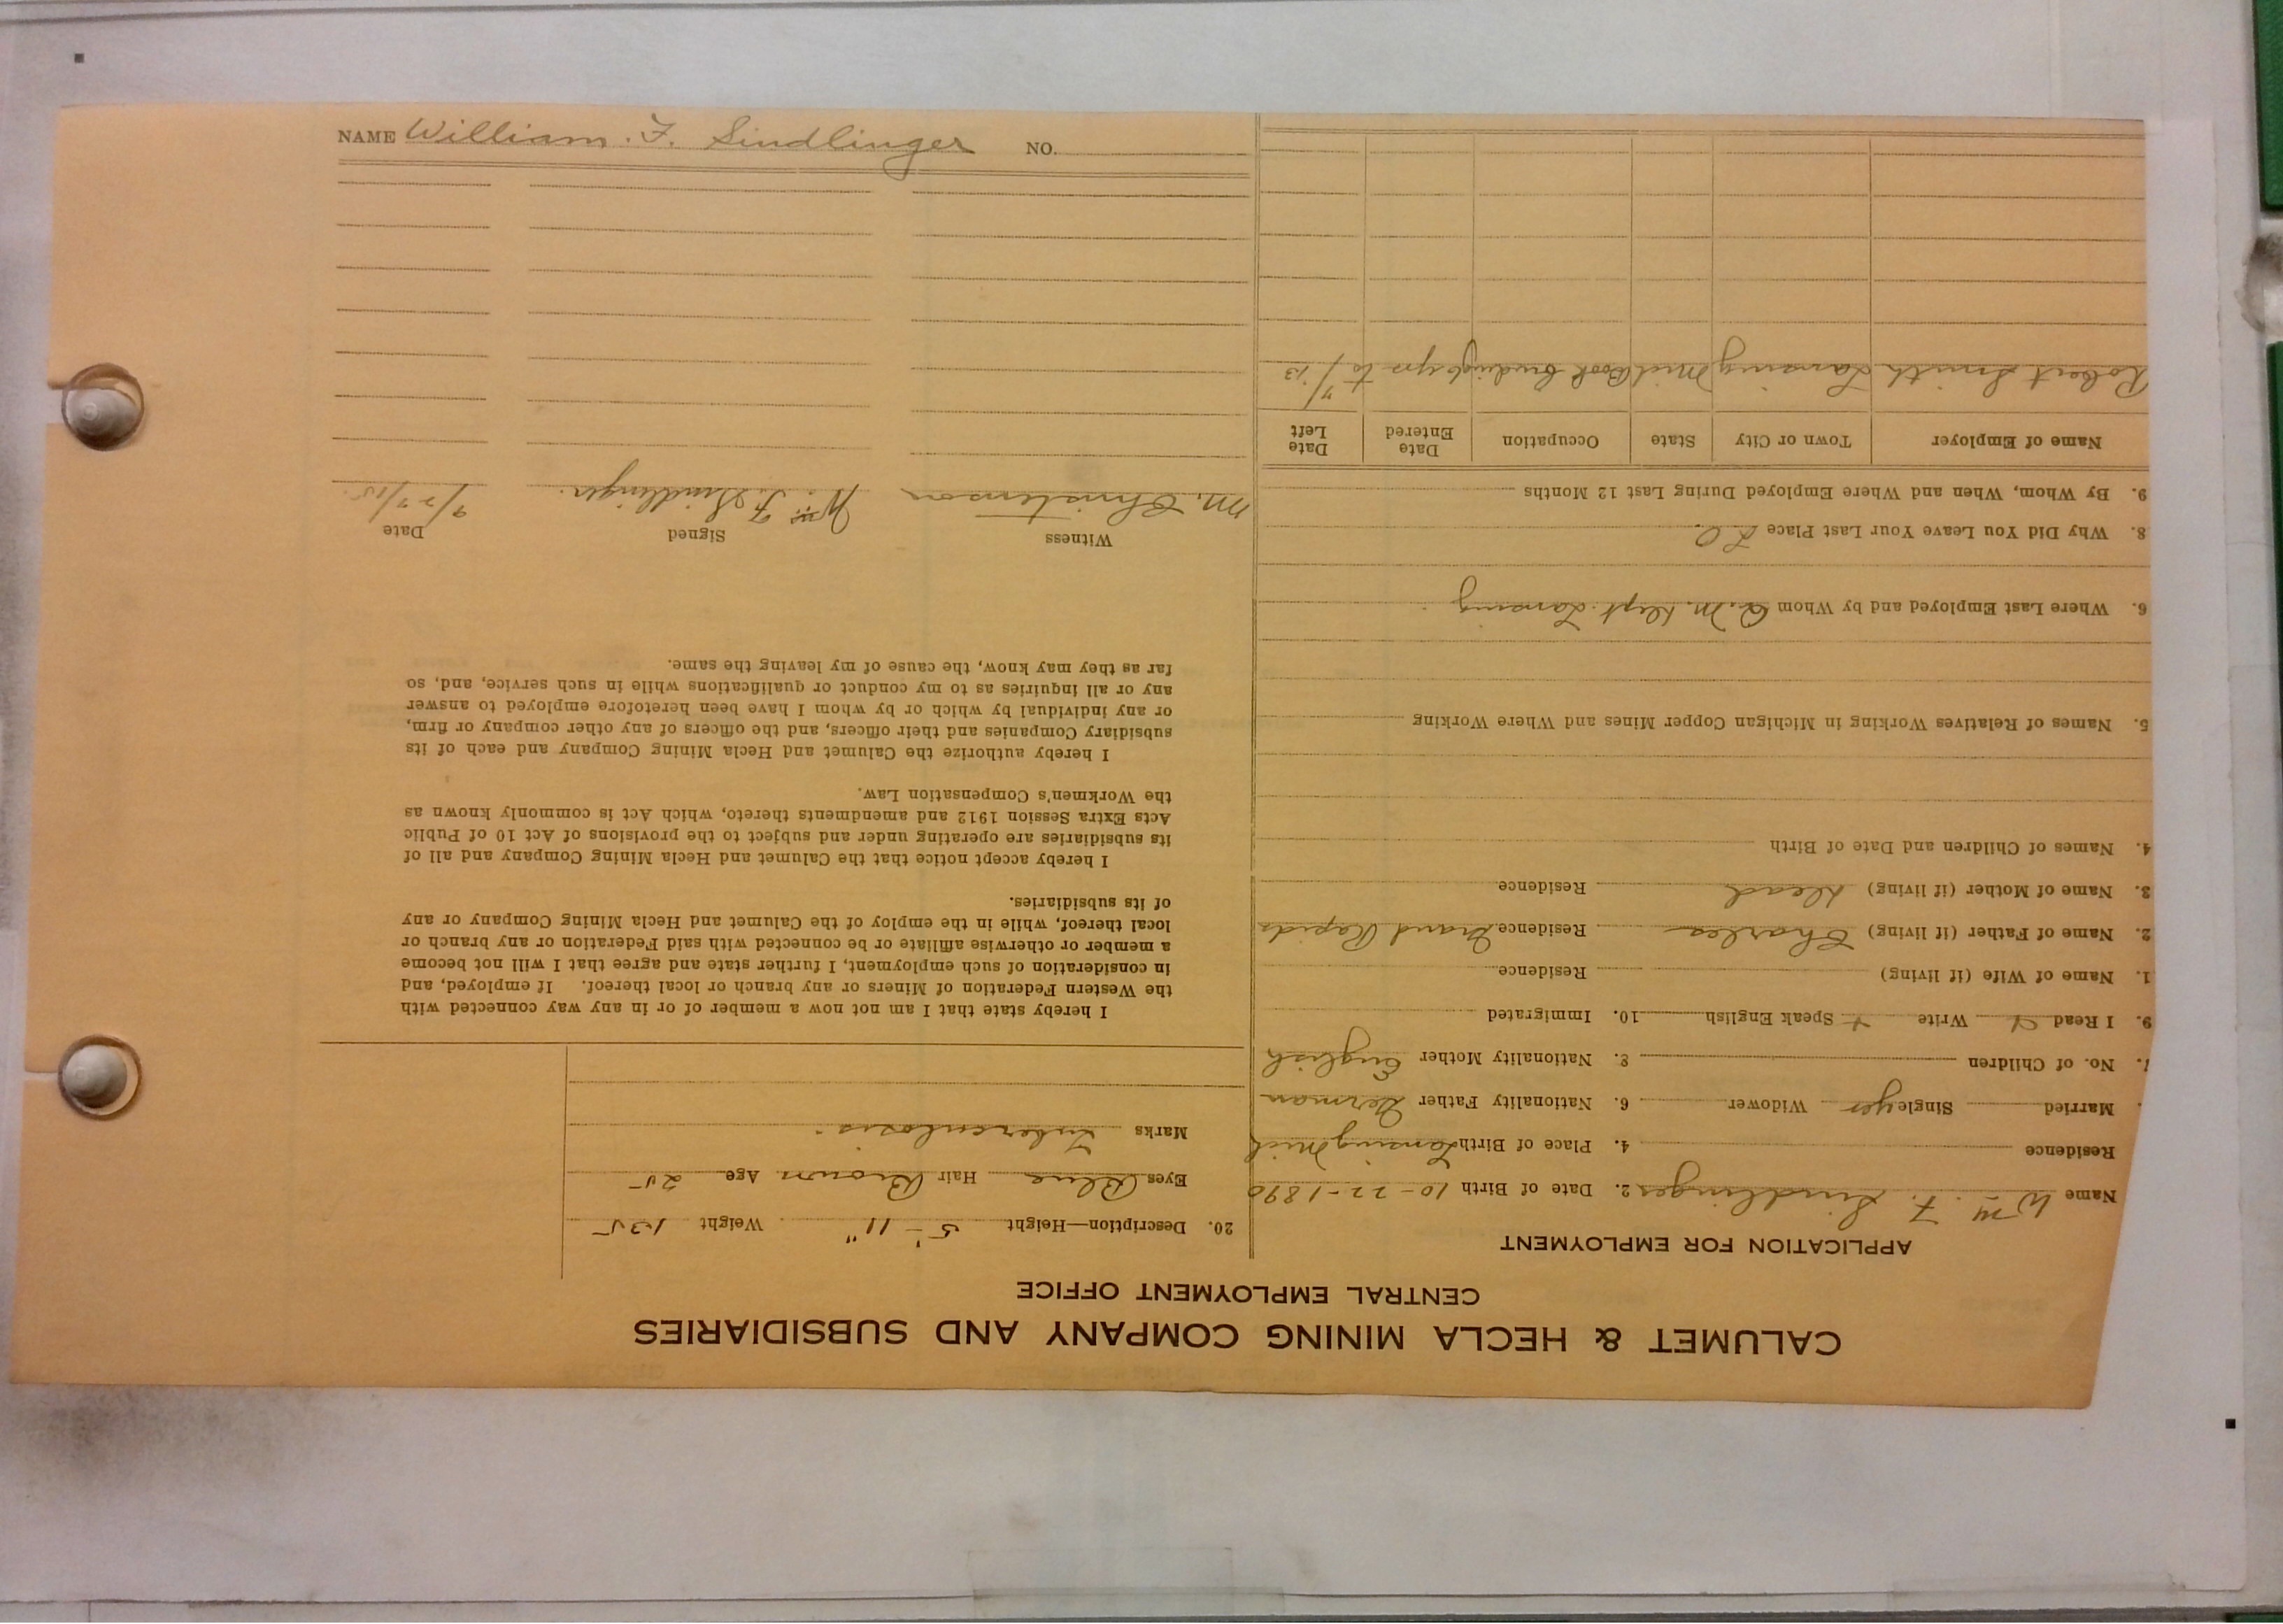 CALUMET & HECLA MINING COMPANY AND SUBSIDIARIES
CENTRAL EMPLOYMENT OFFICE
APPLICATION FOR EMPLOYMENT
Name Wm. F. Sindlinger 2. Date of Birth 10-22-1890
Residence 4. Place of Birth Lansing Mich
Married Single yes Widower 6. Nationality Father German
7. No. of Children 8. Nationality Mother English
9. I Read Write Speak English 10. Immigrated
1. Name of Wife (if living) Residence
2. Name of Father (if living) Charles Residence Grand Rapids
3. Name of Mother (if living) Dead Residence
4. Names of Children and Date of Birth
5. Names of Relatives Working in Michigan Copper Mines and Where Working
6. Where Last Employed and by Whom Q. M. Dept. Lansing
8. Why Did You Leave Your Last Place
9. By Whom, When and Where Employed During Last 12 Months
Name of Employer Town or City State Occupation Date Entered Date Left
Robert Smith Lansing Mich Book binding yrs to 7/13
20. Description—Height 5'-11" Weight 135
Eyes Blue Hair Brown Age 25
Marks Tuberculosis.
I hereby state that I am not now a member of or in any way connected with
the Western Federation of Miners or any branch or local thereof. If employed, and
in consideration of such employment, I further state and agree that I will not become
a member or otherwise affiliate or be connected with said Federation or any branch or
local thereof, while in the employ of the Calumet and Hecla Mining Company or any
of its subsidiaries.
I hereby accept notice that the Calumet and Hecla Mining Company and all of
its subsidiaries are operating under and subject to the provisions of Act 10 of Public
Acts Extra Session 1912 and amendments thereto, which Act is commonly known as
the Workmen's Compensation Law.
I hereby authorize the Calumet and Hecla Mining Company and each of its
subsidiary Companies and their officers, and the officers of any other company or firm,
or any individual by which or by whom I have been heretofore employed to answer
any or all inquiries as to my conduct or qualifications while in such service, and, so
far as they may know, the cause of my leaving the same.
Witness Signed Date
M. Christenson Wm. F. Sindlinger. 9/27/15.
NAME William. F. Sindlinger NO.